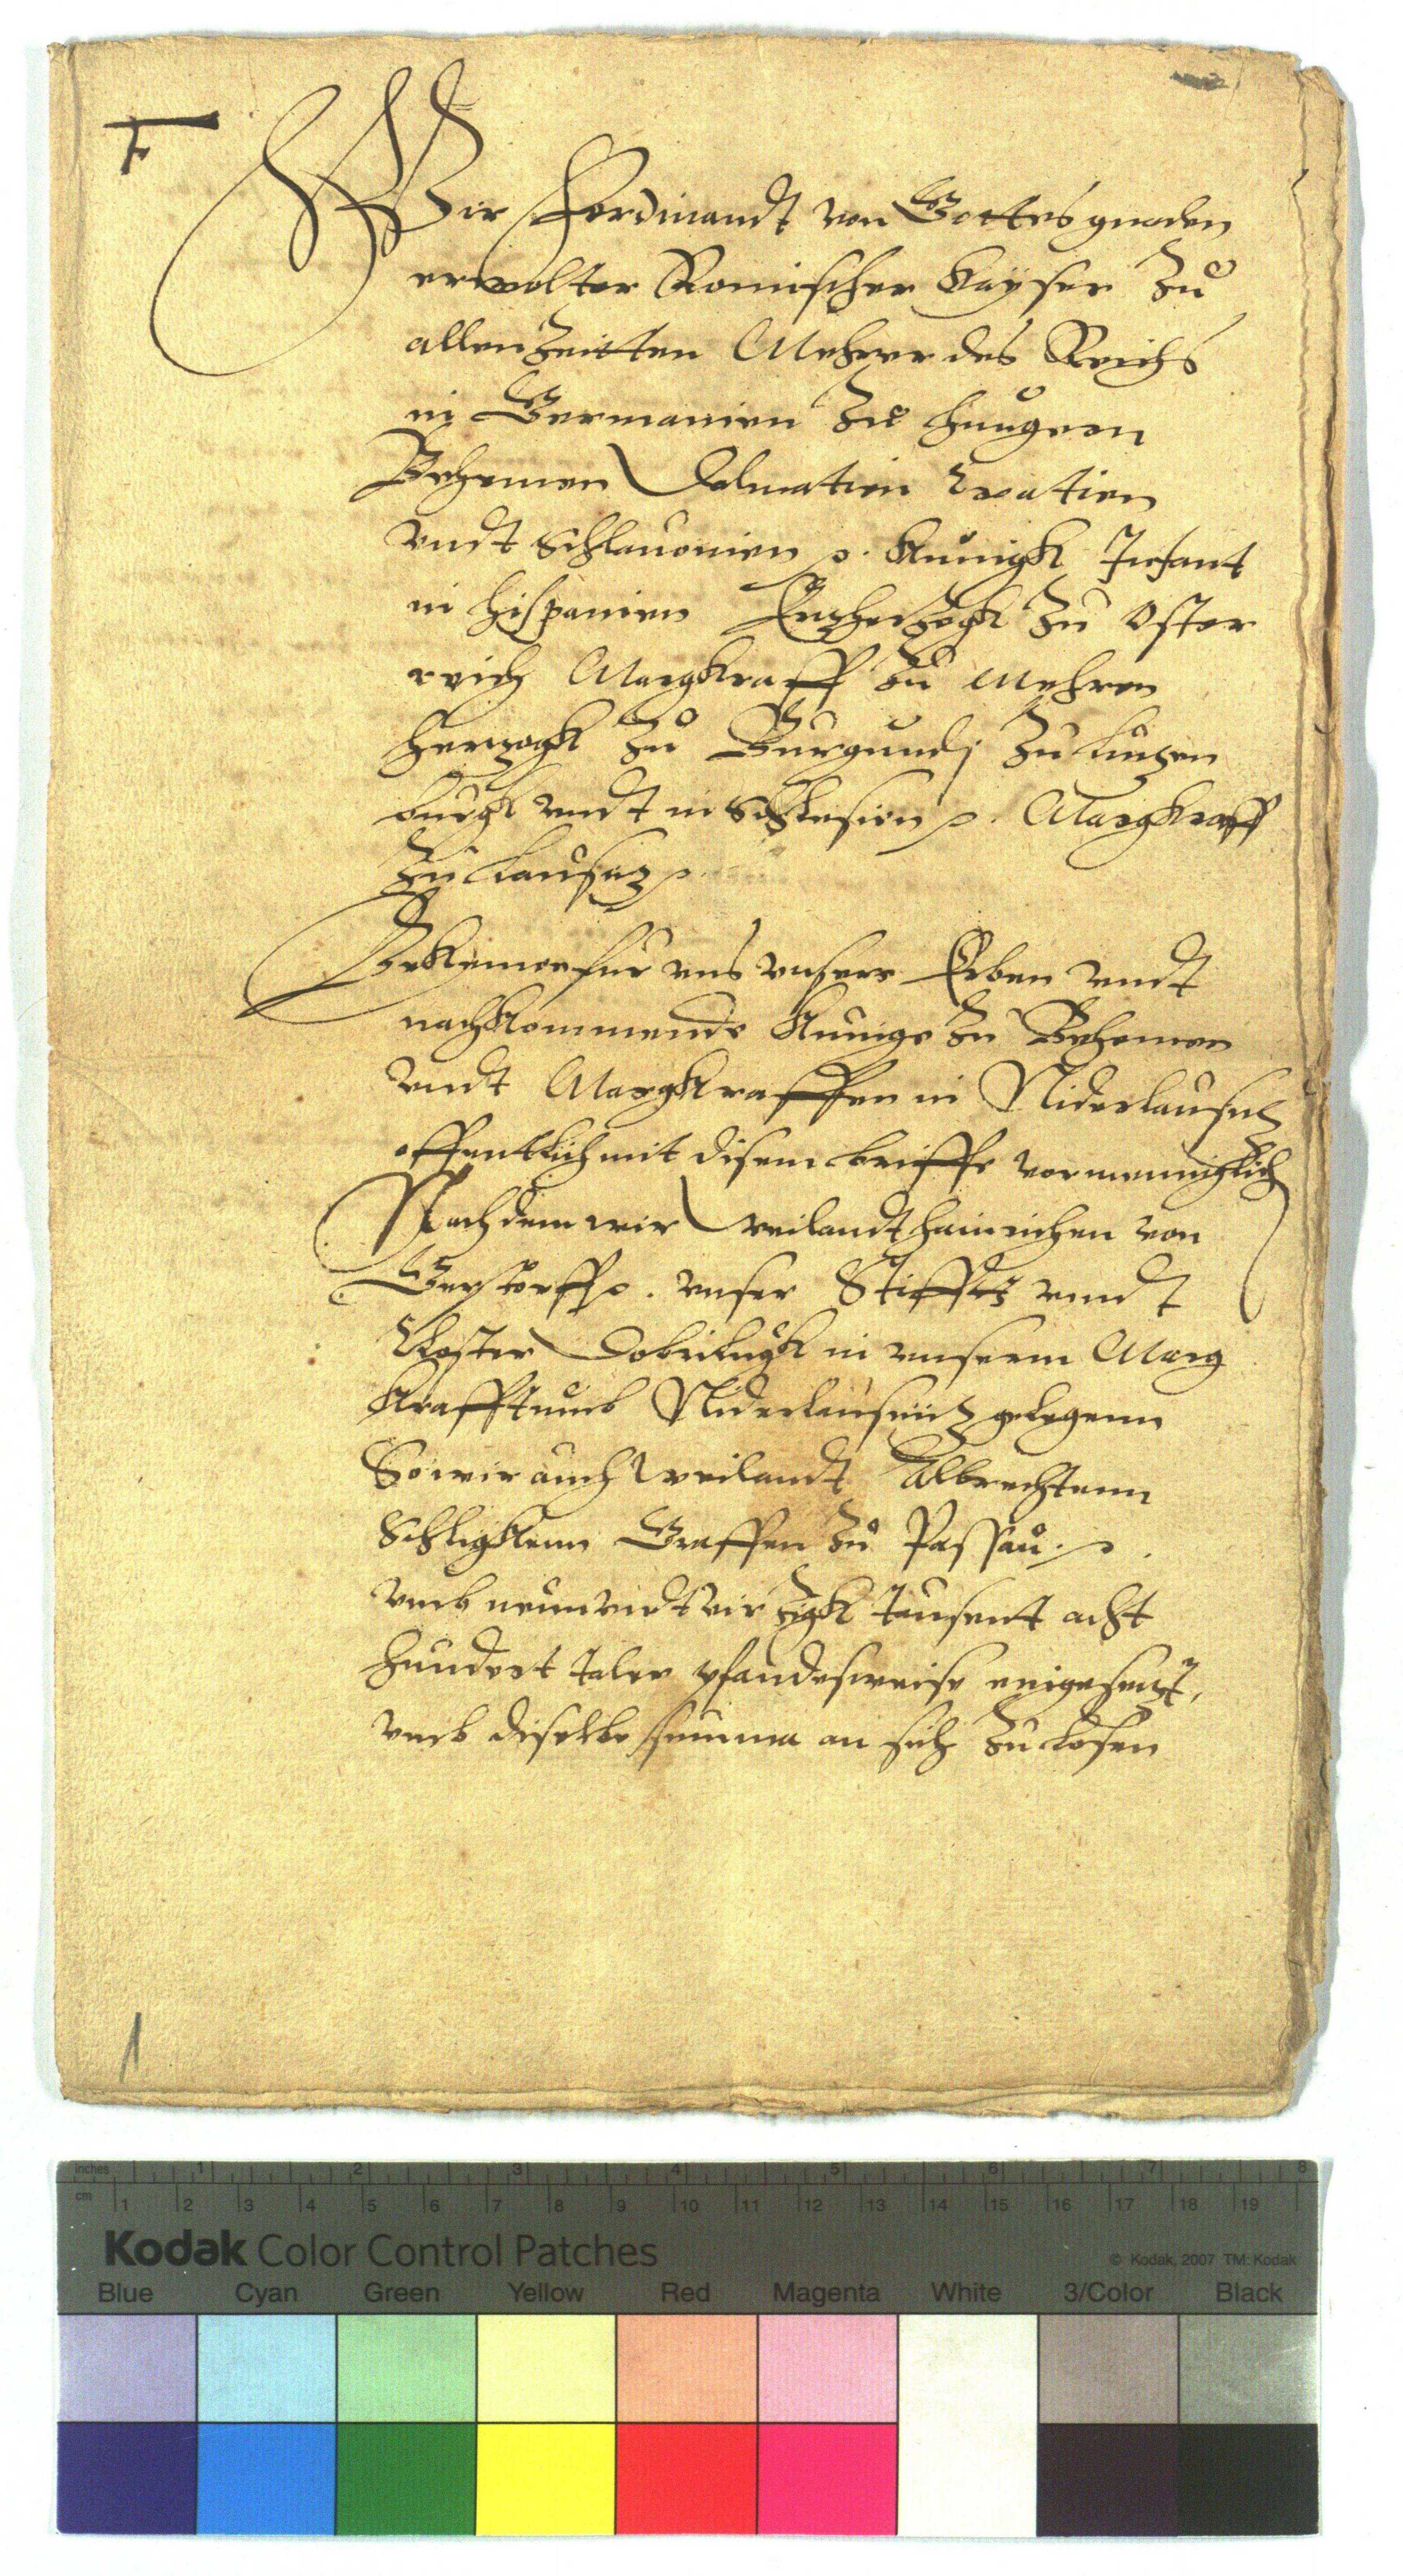 F
Wir Ferdinandt von Gottes gnaden
erwolter Romischer Kayser zu
allen Zeitten Mehrer des Reichs
in Germanien zu Hungern
Behemen Dalmatien Croatien
vndt Schlauonien p. Kunigk Infant
in Hispanien Erzherzogk zu Oster
reich Margkraff zu Mehren
Herzogk zu Burgundj zu Luzen
burgk vndt in Schlesien p. Margkraff
zu Lausiz p.
Bekennen fur vns vnsere Erben vndt
nachkommende Kunige zu Behemen
vndt Margkraffen in Niderlausitz
offentlich mit disem briffe vormenniglich
Nach dem wir weilandt Hainrichen von
Gerstorff p. vnser Stifftz vnndt
Closter Dobrilugk in vnserm Marg
kraffthumb Niderlausnitz gelegenn
So wir auch weilandt Albrechtenn
Schligkenn Graffen zu Passau p.
vmb neun vndt virzigk tausent acht
hundert taler pfandesweise eingesezt,
vmb diselbe summa an sich zu losen
1
inches 1 2 3 4 5 6 7 8
cm 1 2 3 4 5 6 7 8 9 10 11 12 13 14 15 16 17 18 19
Kodak Color Control Patches
© Kodak, 2007 TM: Kodak
Blue Cyan Green Yellow Red Magenta White 3/Color Black